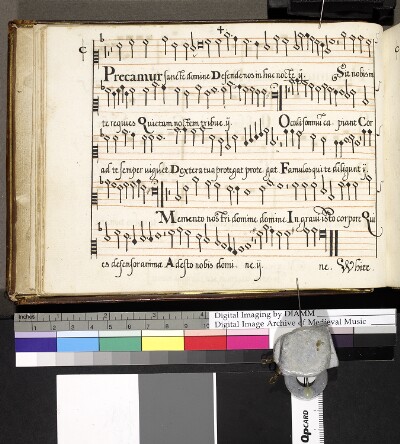 Precamur sancte domine Defende nos in hac nocte ij. Sit nobis in
te requies Quietam noctem tribue ij. Oculi somnum capiant Cor
ad te semper vigilet Dextera tua protegat protegat Famulos qui te diligunt ij.
Memento nostri domine domine In gravi isto corpore Qui
es defensor anima Adesto nobis domine ij. ne. White.
Digital Imaging by DIAMM
Digital Image Archive of Medieval Music
inches 1 2 3 4
QPCARD